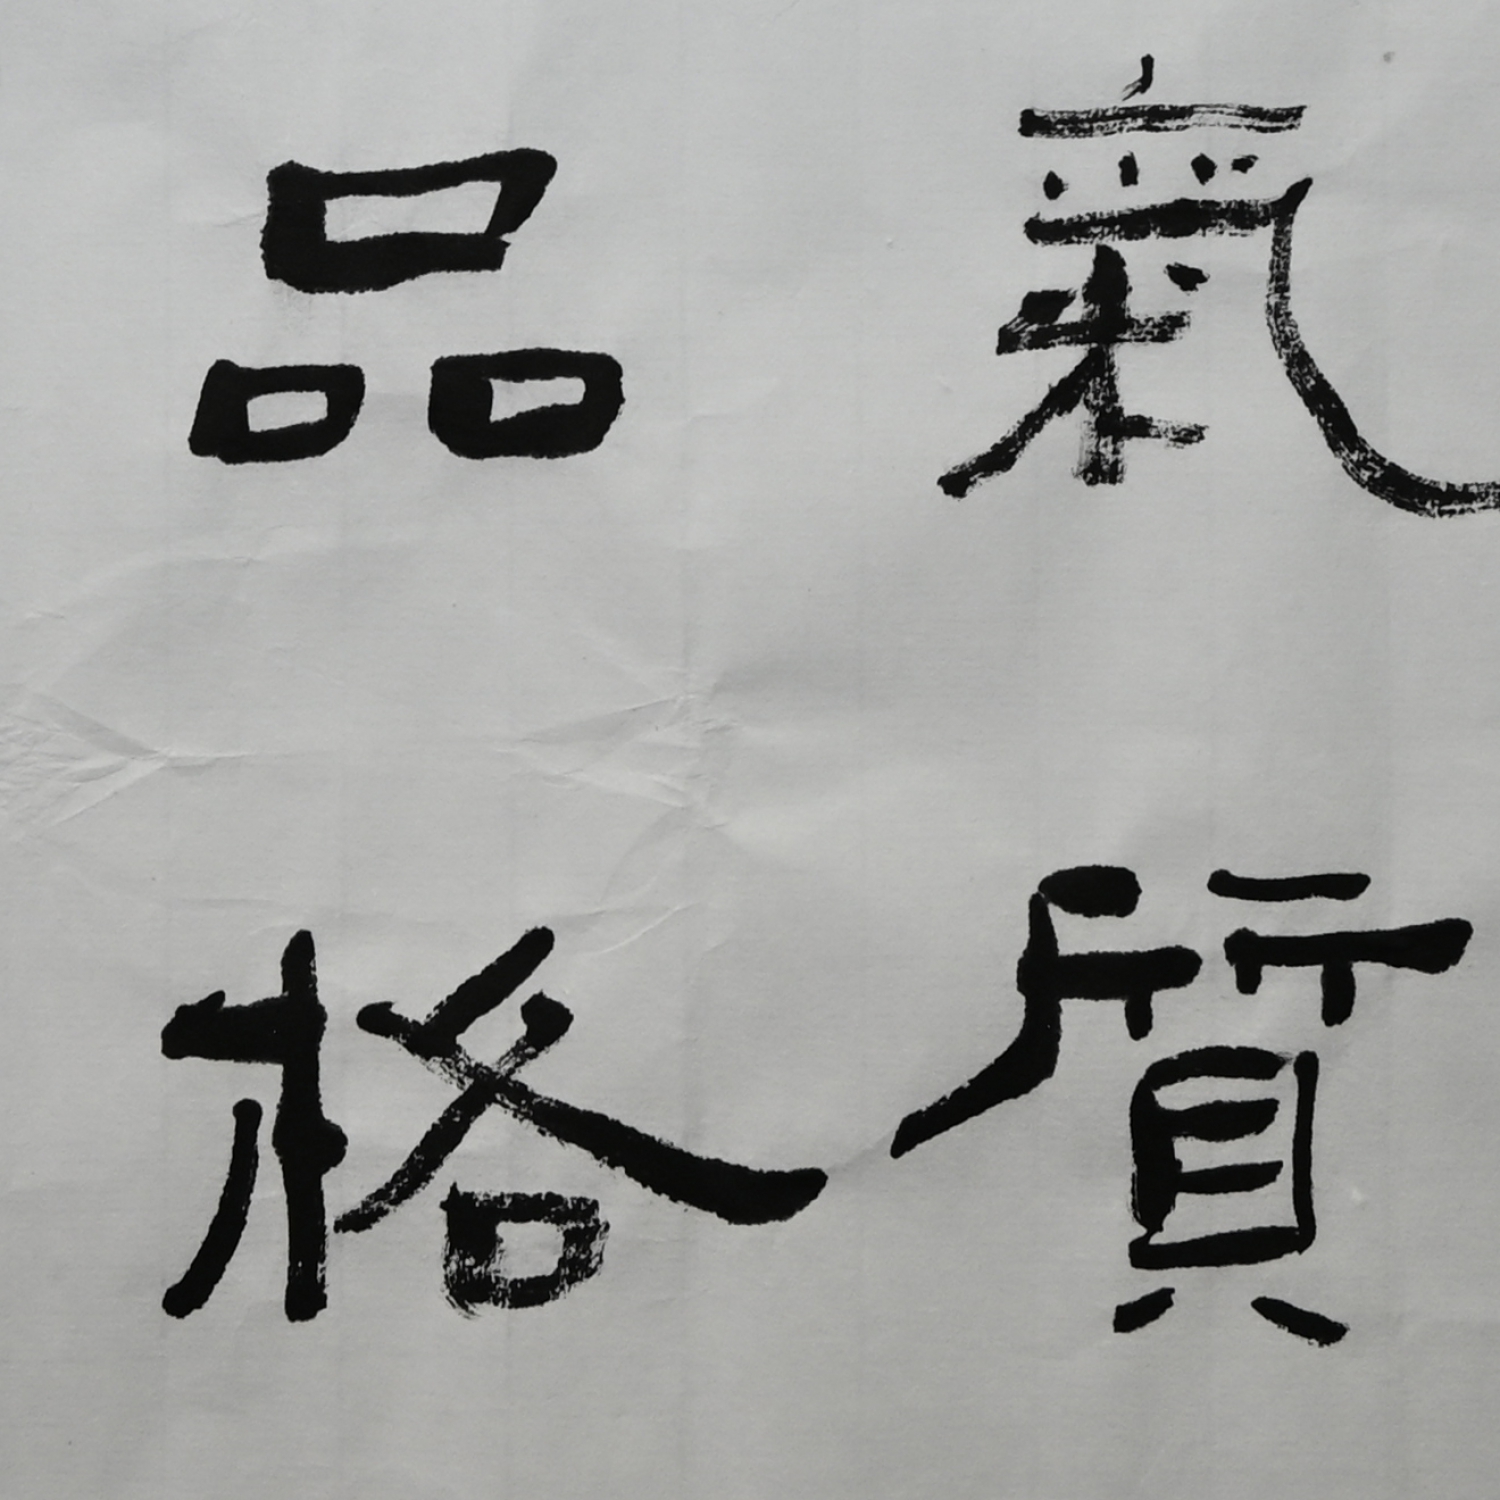 氣質
品格